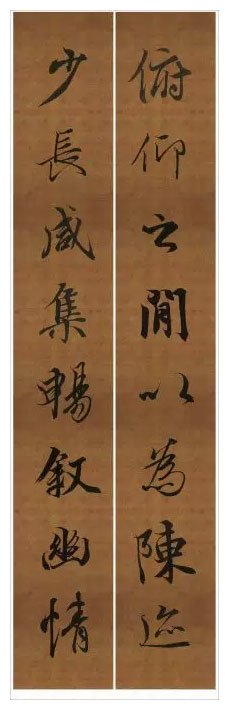 俯仰之間以為陳迹
少長咸集暢叙幽情